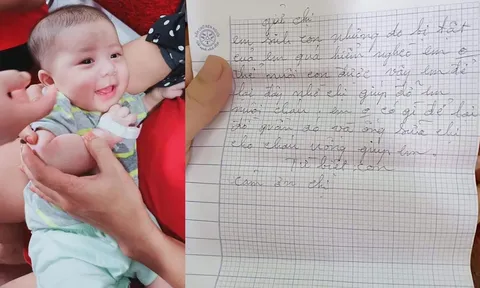 gửi chị
em sinh con nhưng do bị đặt
của em quá hiền nghèo em 0
thể nuôi con được vậy em để
lại đó nhờ chị giúp đỡ em
nuôi cháu em 0 có gì để lại
đồ quần áo và ông sữa chị
cho cháu uống giúp em.
Từ biệt con
cảm ơn chị